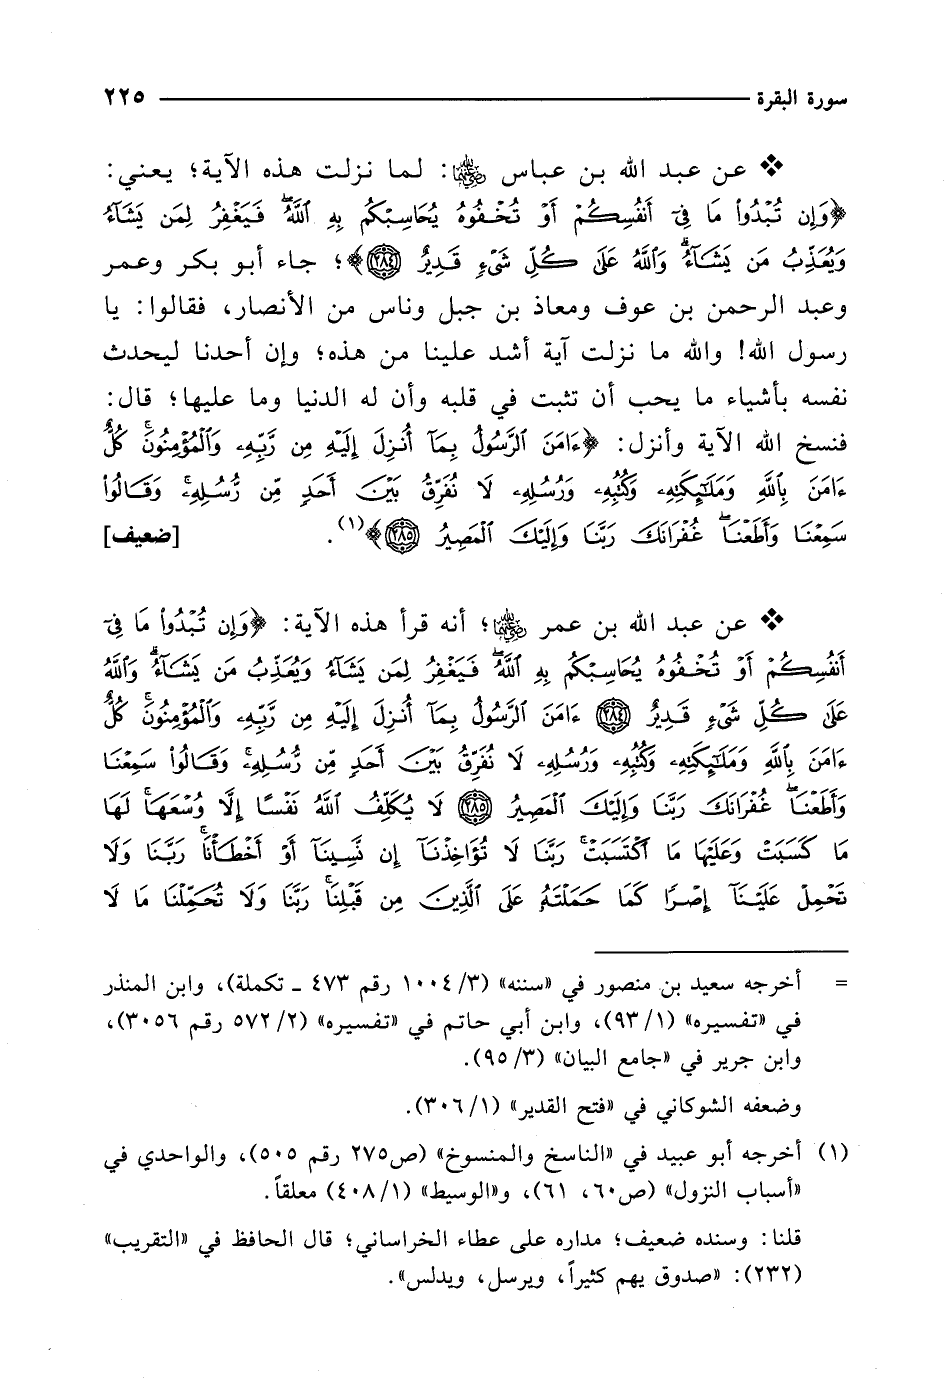 سورة البقرة ٢٢٥
❖ عن عبد الله بن عباس ﷺ: لما نزلت هذه الآية؛ يعني:
﴿وَإِن تُبْدُوا۟ مَا فِىٓ أَنفُسِكُمْ أَوْ تُخْفُوهُ يُحَاسِبْكُم بِهِ ٱللَّهُ ۖ فَيَغْفِرُ لِمَن يَشَآءُ
وَيُعَذِّبُ مَن يَشَآءُ ۗ وَٱللَّهُ عَلَىٰ كُلِّ شَىْءٍ قَدِيرٌ ٢٨٤﴾؛ جاء أبو بكر وعمر
وعبد الرحمن بن عوف ومعاذ بن جبل وناس من الأنصار، فقالوا: يا
رسول الله! والله ما نزلت آية أشد علينا من هذه؛ وإن أحدنا ليحدث
نفسه بأشياء ما يحب أن تثبت في قلبه وأن له الدنيا وما عليها؛ قال:
فنسخ الله الآية وأنزل: ﴿ءَامَنَ ٱلرَّسُولُ بِمَآ أُنزِلَ إِلَيْهِ مِن رَّبِّهِۦ وَٱلْمُؤْمِنُونَ ۚ كُلٌّ
ءَامَنَ بِٱللَّهِ وَمَلَـٰٓئِكَتِهِۦ وَكُتُبِهِۦ وَرُسُلِهِۦ لَا نُفَرِّقُ بَيْنَ أَحَدٍ مِّن رُّسُلِهِۦ ۚ وَقَالُوا۟
سَمِعْنَا وَأَطَعْنَا ۖ غُفْرَانَكَ رَبَّنَا وَإِلَيْكَ ٱلْمَصِيرُ ٢٨٥﴾(١). [ضعيف]
❖ عن عبد الله بن عمر ؛ أنه قرأ هذه الآية: ﴿وَإِن تُبْدُوا۟ مَا فِىٓ
أَنفُسِكُمْ أَوْ تُخْفُوهُ يُحَاسِبْكُم بِهِ ٱللَّهُ ۖ فَيَغْفِرُ لِمَن يَشَآءُ وَيُعَذِّبُ مَن يَشَآءُ ۗ وَٱللَّهُ
عَلَىٰ كُلِّ شَىْءٍ قَدِيرٌ ٢٨٤ ءَامَنَ ٱلرَّسُولُ بِمَآ أُنزِلَ إِلَيْهِ مِن رَّبِّهِۦ وَٱلْمُؤْمِنُونَ ۚ كُلٌّ
ءَامَنَ بِٱللَّهِ وَمَلَـٰٓئِكَتِهِۦ وَكُتُبِهِۦ وَرُسُلِهِۦ لَا نُفَرِّقُ بَيْنَ أَحَدٍ مِّن رُّسُلِهِۦ ۚ وَقَالُوا۟ سَمِعْنَا
وَأَطَعْنَا ۖ غُفْرَانَكَ رَبَّنَا وَإِلَيْكَ ٱلْمَصِيرُ ٢٨٥ لَا يُكَلِّفُ ٱللَّهُ نَفْسًا إِلَّا وُسْعَهَا ۚ لَهَا
مَا كَسَبَتْ وَعَلَيْهَا مَا ٱكْتَسَبَتْ ۗ رَبَّنَا لَا تُؤَاخِذْنَآ إِن نَّسِينَآ أَوْ أَخْطَأْنَا ۚ رَبَّنَا وَلَا
تَحْمِلْ عَلَيْنَآ إِصْرًا كَمَا حَمَلْتَهُۥ عَلَى ٱلَّذِينَ مِن قَبْلِنَا ۚ رَبَّنَا وَلَا تُحَمِّلْنَا مَا لَا
= أخرجه سعيد بن منصور في «سننه» (٣/ ١٠٠٤ رقم ٤٧٣ ـ تكملة)، وابن المنذر
في «تفسيره» (١/ ٩٣)، وابن أبي حاتم في «تفسيره» (٢/ ٥٧٢ رقم ٣٠٥٦)،
وابن جرير في «جامع البيان» (٣/ ٩٥).
وضعفه الشوكاني في «فتح القدير» (١/ ٣٠٦).
(١) أخرجه أبو عبيد في «الناسخ والمنسوخ» (ص٢٧٥ رقم ٥٠٥)، والواحدي في
«أسباب النزول» (ص٦٠، ٦١)، و«الوسيط» (١/ ٤٠٨) معلقاً.
قلنا: وسنده ضعيف؛ مداره على عطاء الخراساني؛ قال الحافظ في «التقريب»
(٢٣٢): «صدوق يهم كثيراً، ويرسل، ويدلس».